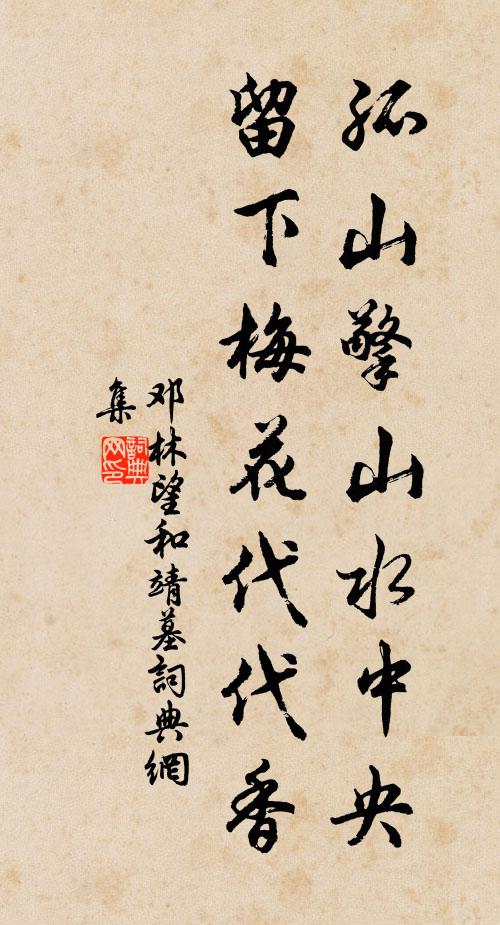 孤山擎山水中央
留下梅花代代香
邓林望和靖墓詞典網
集
詞典
网印